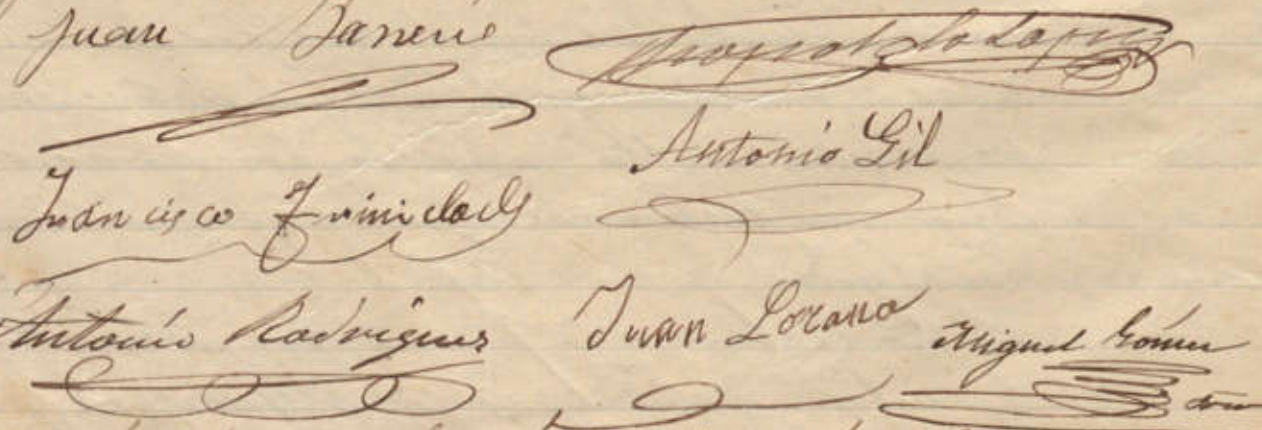 Juan
Leopoldo Lopez
Antonio Gil
Francisco Trinidad
Antonio Rodriguez
Juan Lozano
Miguel Gómez